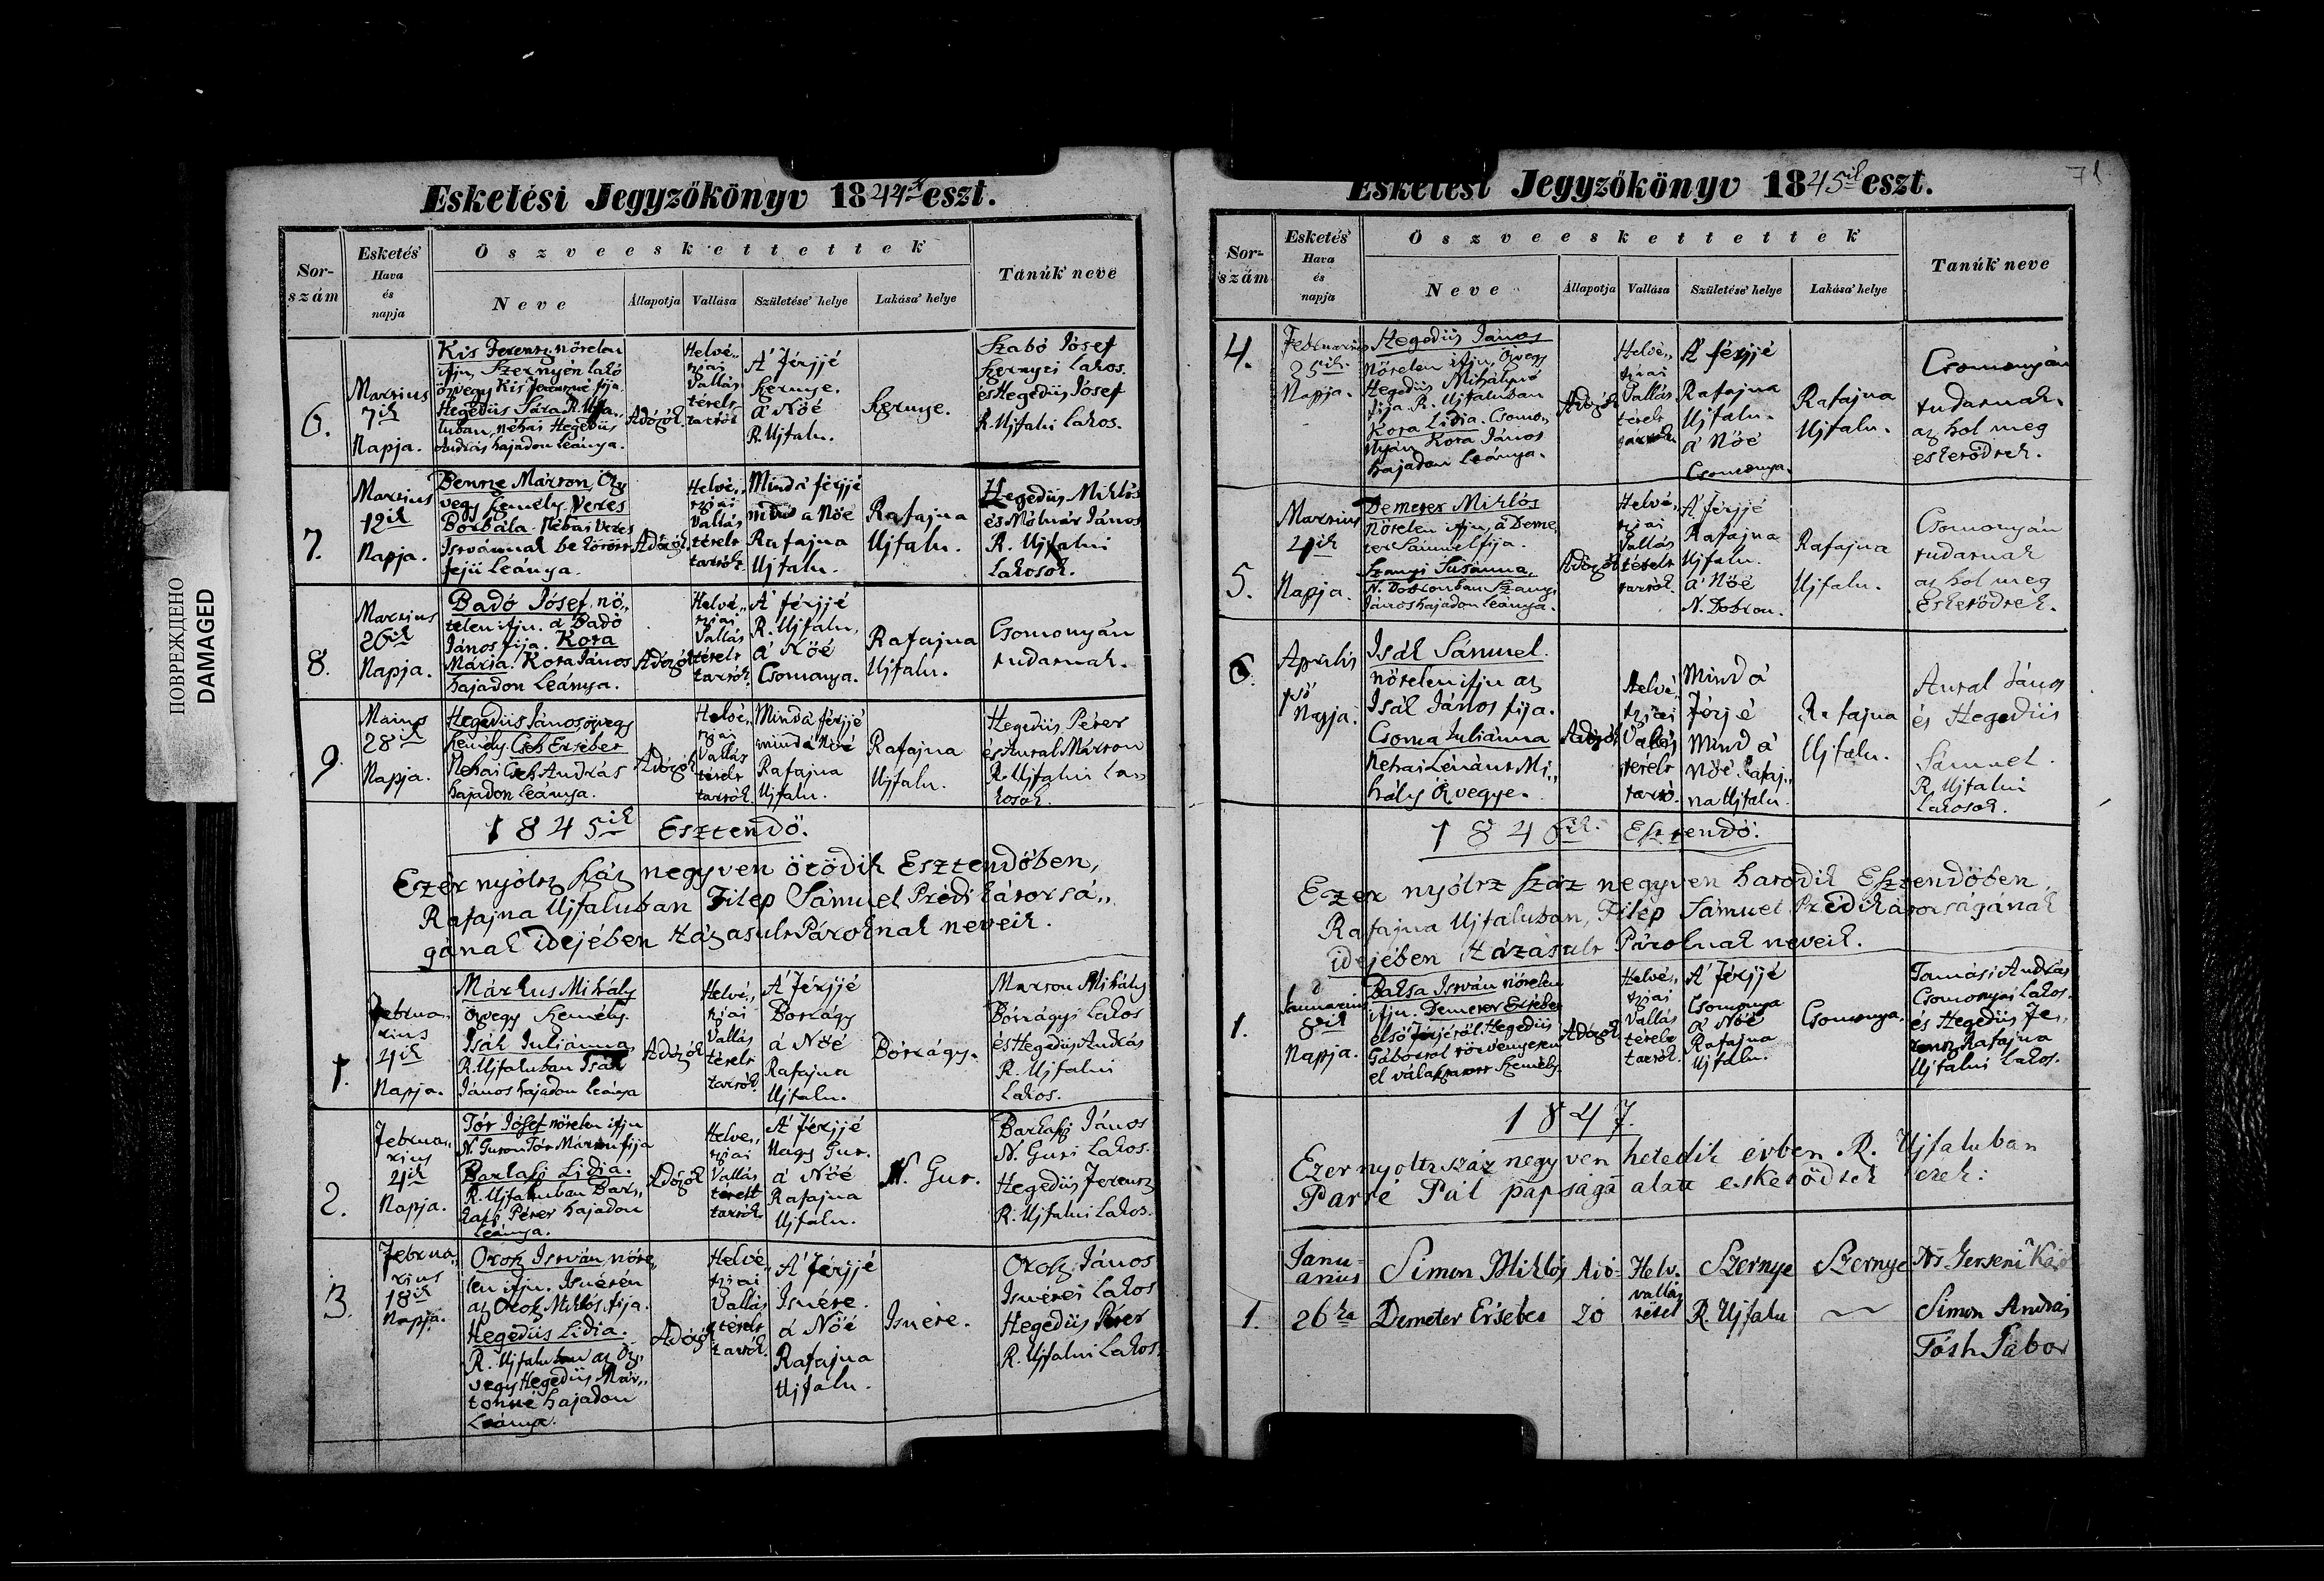 ПОВРЕЖДЕНО
DAMAGED
Esketési Jegyzőkönyv 1844 eszt.
Sor-
szám
Esketés'
Hava
és
napja
Öszveeskettettek
Neve
Állapotja
Vallása
Születése' helye
Lakása' helye
Tanúk' neve
6.
Martius
7ik
Napja.
Kis Ferentz nőtelen
ifju, Szernyen lakó
özvegy Kis Ferentzné fija
Hegedüs Sára R. Ujfa„
luban, néhai Hegedüs
András hajadon leánya.
Adózók
Helvé„
tziai
Vallás
tételt
tartók
A' Férjjé
Szernye.
a' Nőé
R. Ujfalu.
Szernye.
Szabó Jósef
Szernyei Lakos.
és Hegedüs Jósef
R. Ujfalui Lakos.
7.
Martius
12ik
Napja.
Benne Márton, Öz
vegy Személy. Veres
Borbála. Néhai Veres
Istvánnak be kötött
fejü leánya.
Adózók.
Helvé„
tziai
Vallás
tételt
tartók.
Mind a' férjjé
mind a Nőé
Rafajna
Ujfalu.
Rafajna
Ujfalu.
Hegedüs Miklós
és Mólnár János
R. Ujfalui
Lakosok.
8.
Martius
26ik
Napja.
Badó Jósef, nő„
telen ifju. a' Badó
János fija. Kota
Mária. Kota János
hajadon leánya.
Adózók
Helvé„
tziai
Vallás
tételt
tartók.
A' férjjé
R. Ujfalu,
a' Nőé
Csomonya.
Rafajna
Ujfalu.
Csomonyán
tudatnak.
9
Május
28ik
Napja.
Hegedüs János, özvegy
Személy. Cseh Ersébet
Néhai Cseh András
hajadon leánya.
Adózók
Helvé„
tziai
Vallás
tételt
tartók.
Mind a' férjjé
mind a' Nőé
Rafajna
Ujfalu.
Rafajna
Ujfalu.
Hegedüs Péter
és Antal Márton
R. Ujfalui La„
kosok.
1845ik Esztendő.
Ezer nyóltz Száz negyven ötödik Esztendőben,
Rafajna Ujfaluban Filep Sámuel Prédikátorsá„
gának idejében Házasult Pároknak neveik.
1.
Februa„
rius
4ik
Napja.
Márkus Mihály
özvegy Személy.
Isák Juliánna,
R. Ujfaluban Isák
János hajadon leánya
Adózók
Helvé„
tziai
Vallás
tételt
tartók
A' Férjjé
Bótrágy
a' Nőé
Rafajna
Ujfalu.
Bótrágy.
Marton Mihály
Bótrágyi Lakos
és Hegedüs András
R. Ujfalui
Lakos.
2.
Februa„
rius
4ik
Napja.
Tór Jósef nőtelen ifju
N. Guton Tór Márton fija
Barkaszi Lidia.
R. Ujfaluban Bar„
kaszi Péter hajadon
leánya.
Adózók
Helve„
tziai
Vallás
tételt
tartók.
A' férjjé
Nagy Gut.
a' Nőé
Rafajna
Ujfalu.
N. Gut.
Barkaszi János
N. Guti Lakos.
Hegedüs Ferentz
R. Ujfalui Lakos.
3.
Februa„
rius
18ik
Napja.
Orosz István, nőte„
len ifju. Isnétén
az Orosz Miklós fija.
Hegedüs Lidia.
R. Ujfaluban az Öz„
vegy Hegedüs Már„
tonné hajadon
leánya.
Adózók
Helvé„
tziai
Vallás
tételt
tartók.
A' Férjjé
Isnéte.
a' Nőé
Rafajna
Ujfalu.
Isnéte.
Orosz János
Isnétei Lakos
Hegedüs Péter
R. Ujfalui Lakos.
71
Esketési Jegyzőkönyv 1845ik eszt.
Sor-
szám
Esketés'
Hava
és
napja
Öszveeskettettek
Neve
Állapotja
Vallása
Születése' helye
Lakása' helye
Tanúk' neve
4.
Februarius
25ik.
Napja.
Hegedüs János
nőtelen ifju, Özvegy
Hegedüs Mihályné
fija R. Ujfaluban
Kota Lidia. Csomo„
nyán Kota János
hajadon leánya.
Adózók
Helvé„
tziai
Vallás
tételt
tartók.
A' férjjé
Rafajna
Ujfalu.
a' Nőé
Csomonya.
Rafajna
Ujfalu.
Csomonyán
tudatnak.
az hol meg
esketődtek.
5.
Martius
4ik
Napja.
Demeter Miklós
Nőtelen ifju, a' Deme„
ter Sámuel fija.
Szanyi Susánna,
N. Dobronban Szanyi
János hajadon leánya.
Adózók
Helvé„
tziai
Vallás
tételt
tartók.
A' férjjé
Rafajna
Ujfalu.
a' Nőé
N. Dobron.
Rafajna
Ujfalu.
Csomonyán
tudatnak
az hol meg
Esketődtek.
6.
Aprilis
1ső
Napja.
Isák Sámuel.
nőtelen ifju az
Isák János fija.
Csoma Juliánna
Néhai Lénárt Mi„
hály Özvegye.
Adózók
Helvé„
tziai
Vallás
tételt
tartó.
Mind a'
Férjé
Mind a'
Nőé Rafaj„
na Ujfalu.
Rafajna
Ujfalu.
Antal János
és Hegedüs
Sámuel.
R. Ujfalui
Lakosok.
1846ik. Esztendő.
Ezer nyóltz Száz negyven hatodik Esztendőben,
Rafajna Ujfaluban, Filep Sámuel Prédikátorságának
idejében Házasult Pároknak neveik.
1.
Januarius
8ik
Napja.
Baksa István nőtelen
ifju. Demeter Ersébet
első férjétől Hegedüs
Gábortól törvényesen
el választatott Személy.
Adózók
Helvé„
tziai
Vallás
tételt
tartók.
A' Férjjé
Csomonya
a' Nőé
Rafajna
Ujfalu.
Csomonya.
Tamási András
Csomonyai Lakos.
és Hegedüs Fe„
rentz Rafajna
Ujfalui Lakos.
1847.
Ezernyoltzszáz negyven hetedik évben R. Ujfaluban
Pál papsága alatt esketödtek ezek:
1.
Janu-
arius
26ka
Simon Miklós
Demeter Ersébet
Adó-
zó
Helv.
vallás
tétel
Szernye
R. Ujfalu
Szernye
Simon András
Tóth Gábor